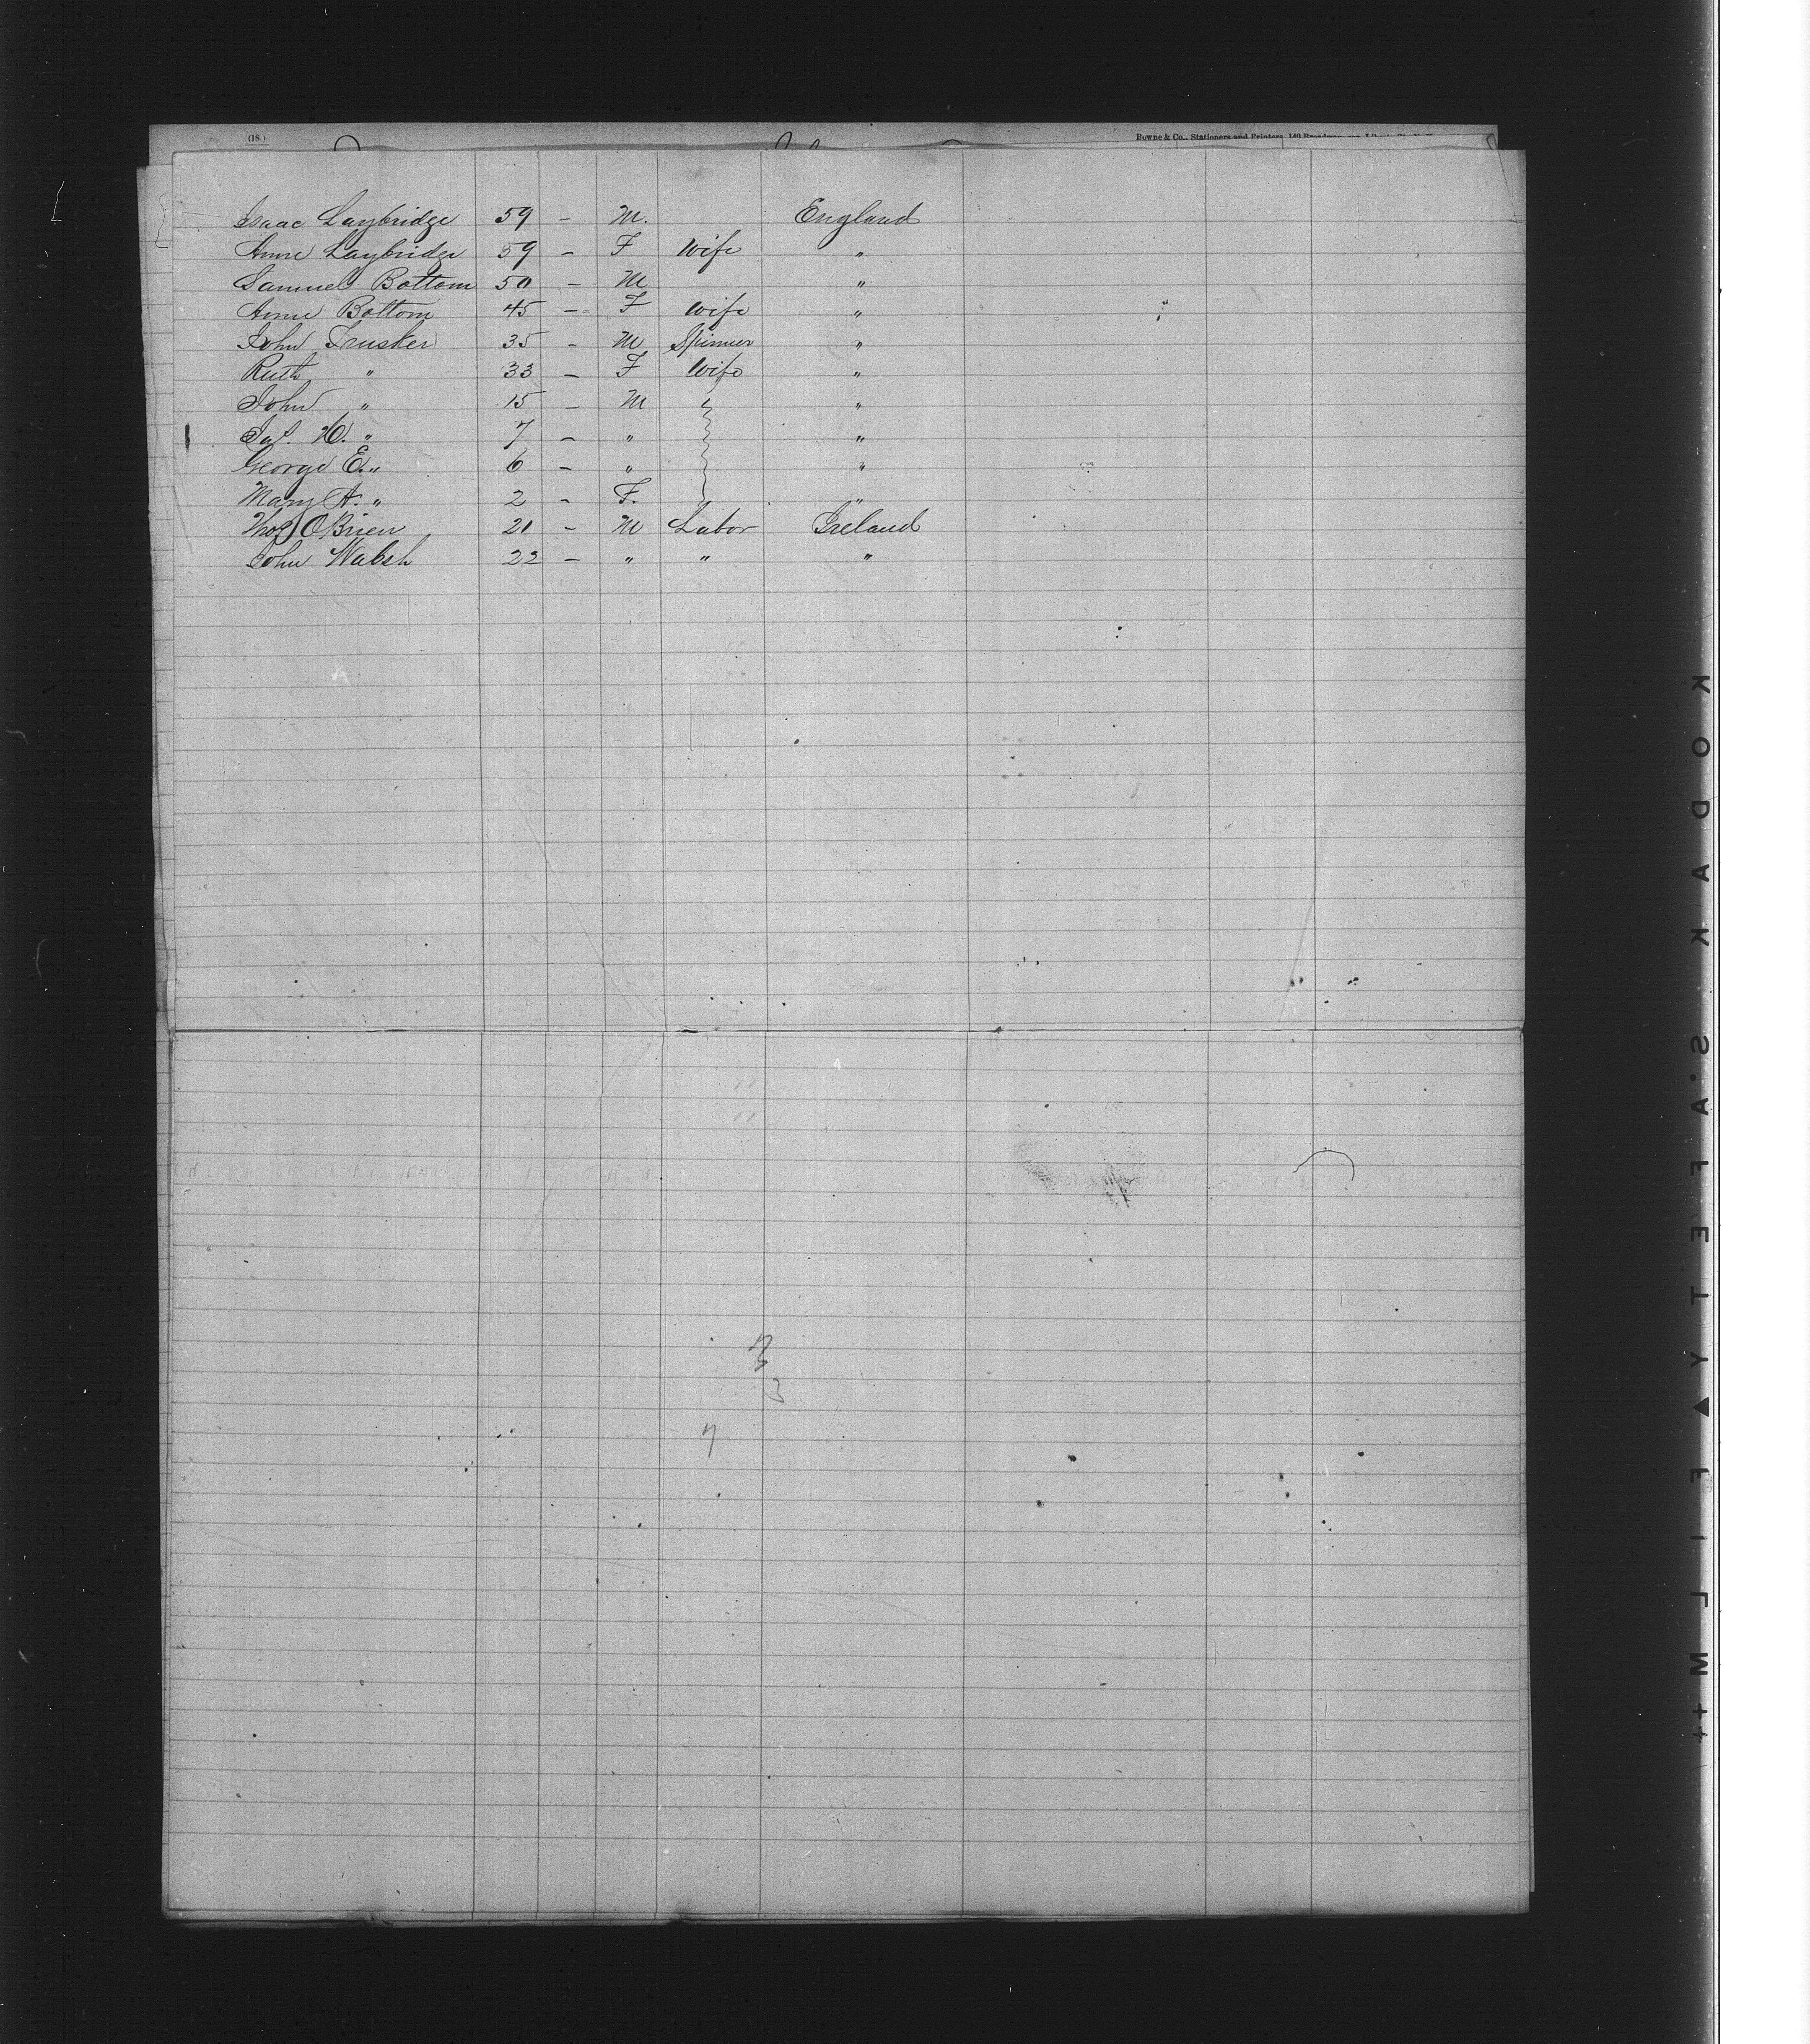 (18.)
Bowne & Co., Stationers and Printers, 149 Broadway
Isaac Laybridge 59 - M. England
Anne Laybridge 59 - F Wife "
Samuel Bottom 50 - M "
Anne Bottom 45 - F Wife "
John Trusker 35 - M Spinner "
Ruth " 33 - F Wife "
John " 15 - M "
H. " 7 - " "
George E. " 6 - " "
Mary A. " 2 - F. "
Thos OBrien 21 - M Labor Ireland
John Walsh 22 - " " "
3
7
KODAK SAFETY FILM